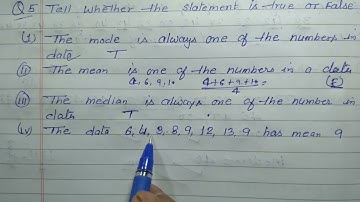 Q5 Tell whether the statement is true or False
(i) The mode is always one of the numbers in
data T
(ii) The mean is one of the numbers in a data
4, 6, 9, 10 (F)
(iii) The median is always one of the number in
data T
(iv) The data 6, 4, 3, 8, 9, 12, 13, 9 has mean 9